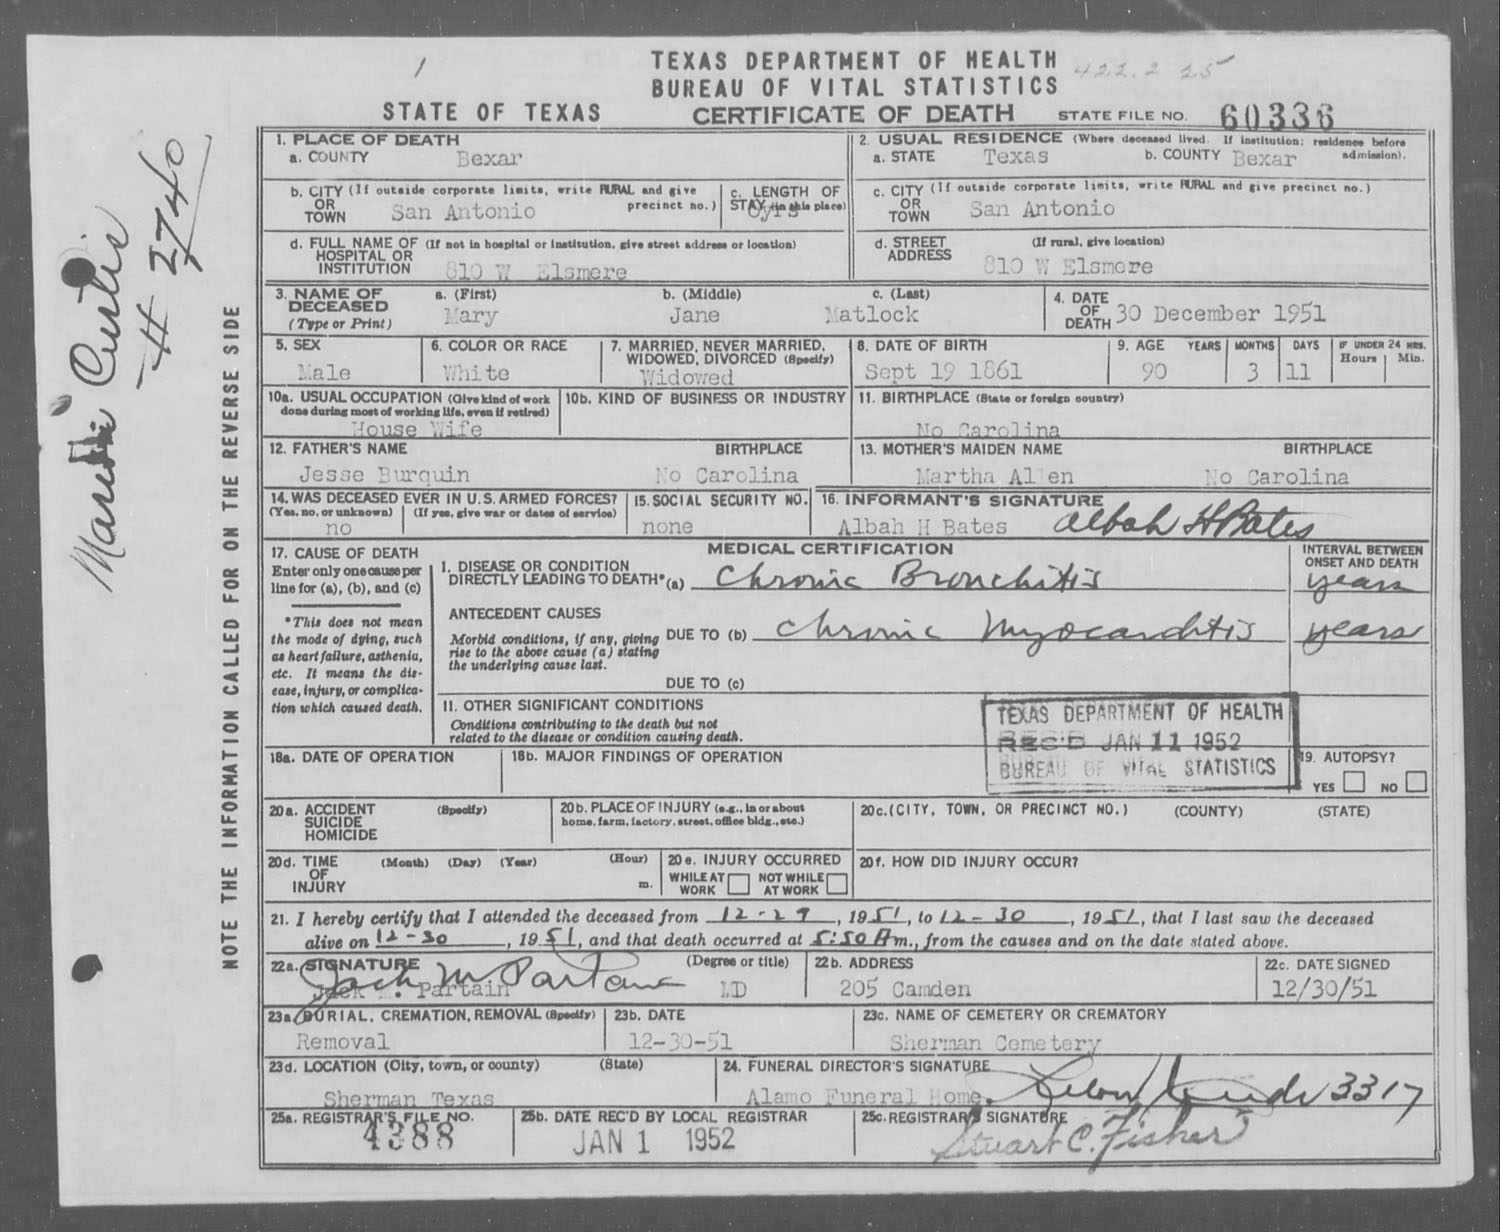 1
TEXAS DEPARTMENT OF HEALTH
422.2 25
BUREAU OF VITAL STATISTICS
STATE OF TEXAS CERTIFICATE OF DEATH STATE FILE NO. 60336
1. PLACE OF DEATH
a. COUNTY Bexar
2. USUAL RESIDENCE (Where deceased lived. If institution: residence before admission).
a. STATE Texas b. COUNTY Bexar
b. CITY (If outside corporate limits, write RURAL and give precinct no.)
OR
TOWN San Antonio
c. LENGTH OF
STAY (in this place)
yrs
c. CITY (If outside corporate limits, write RURAL and give precinct no.)
OR
TOWN San Antonio
d. FULL NAME OF (If not in hospital or institution, give street address or location)
HOSPITAL OR
INSTITUTION 810 W Elsmere
d. STREET (If rural, give location)
ADDRESS
810 W Elsmere
3. NAME OF
DECEASED
(Type or Print)
a. (First) b. (Middle) c. (Last)
Mary Jane Matlock
4. DATE
OF
DEATH 30 December 1951
5. SEX
Male
6. COLOR OR RACE
White
7. MARRIED, NEVER MARRIED,
WIDOWED, DIVORCED (Specify)
Widowed
8. DATE OF BIRTH
Sept 19 1861
9. AGE YEARS MONTHS DAYS IF UNDER 24 HRS.
Hours Min.
90 3 11
10a. USUAL OCCUPATION (Give kind of work
done during most of working life, even if retired)
House Wife
10b. KIND OF BUSINESS OR INDUSTRY
11. BIRTHPLACE (State or foreign country)
No Carolina
12. FATHER'S NAME BIRTHPLACE
Jesse Burquin No Carolina
13. MOTHER'S MAIDEN NAME BIRTHPLACE
Martha Allen No Carolina
14. WAS DECEASED EVER IN U.S. ARMED FORCES?
(Yes, no, or unknown) (If yes, give war or dates of service)
no
15. SOCIAL SECURITY NO.
none
16. INFORMANT'S SIGNATURE
Albah H Bates Albah H Bates
17. CAUSE OF DEATH
Enter only one cause per
line for (a), (b), and (c)
*This does not mean
the mode of dying, such
as heart failure, asthenia,
etc. It means the dis-
ease, injury, or complica-
tion which caused death.
MEDICAL CERTIFICATION
INTERVAL BETWEEN
ONSET AND DEATH
I. DISEASE OR CONDITION
DIRECTLY LEADING TO DEATH* (a) Chronic Bronchitis years
ANTECEDENT CAUSES
Morbid conditions, if any, giving
rise to the above cause (a) stating
the underlying cause last.
DUE TO (b) Chronic Myocarditis years
DUE TO (c)
11. OTHER SIGNIFICANT CONDITIONS
Conditions contributing to the death but not
related to the disease or condition causing death.
TEXAS DEPARTMENT OF HEALTH
REC'D JAN 11 1952
BUREAU OF VITAL STATISTICS
18a. DATE OF OPERATION
18b. MAJOR FINDINGS OF OPERATION
19. AUTOPSY?
YES NO
20a. ACCIDENT (Specify)
SUICIDE
HOMICIDE
20b. PLACE OF INJURY (e.g., in or about
home, farm, factory, street, office bldg., etc.)
20c. (CITY, TOWN, OR PRECINCT NO.) (COUNTY) (STATE)
20d. TIME (Month) (Day) (Year) (Hour)
OF
INJURY m.
20e. INJURY OCCURRED
WHILE AT WORK NOT WHILE AT WORK
20f. HOW DID INJURY OCCUR?
21. I hereby certify that I attended the deceased from 12-29, 1951, to 12-30, 1951, that I last saw the deceased
alive on 12-30, 1951, and that death occurred at 5:50 A m., from the causes and on the date stated above.
22a. SIGNATURE (Degree or title)
Jack M Partain
Jack M. Partain MD
22b. ADDRESS
205 Camden
22c. DATE SIGNED
12/30/51
23a. BURIAL, CREMATION, REMOVAL (Specify)
Removal
23b. DATE
12-30-51
23c. NAME OF CEMETERY OR CREMATORY
Sherman Cemetery
23d. LOCATION (City, town, or county) (State)
Sherman Texas
24. FUNERAL DIRECTOR'S SIGNATURE
Alamo Funeral Home. 3317
25a. REGISTRAR'S FILE NO.
4388
25b. DATE REC'D BY LOCAL REGISTRAR
JAN 1 1952
25c. REGISTRAR'S SIGNATURE
Stuart C. Fisher
NOTE THE INFORMATION CALLED FOR ON THE REVERSE SIDE
Curtis
# 2740